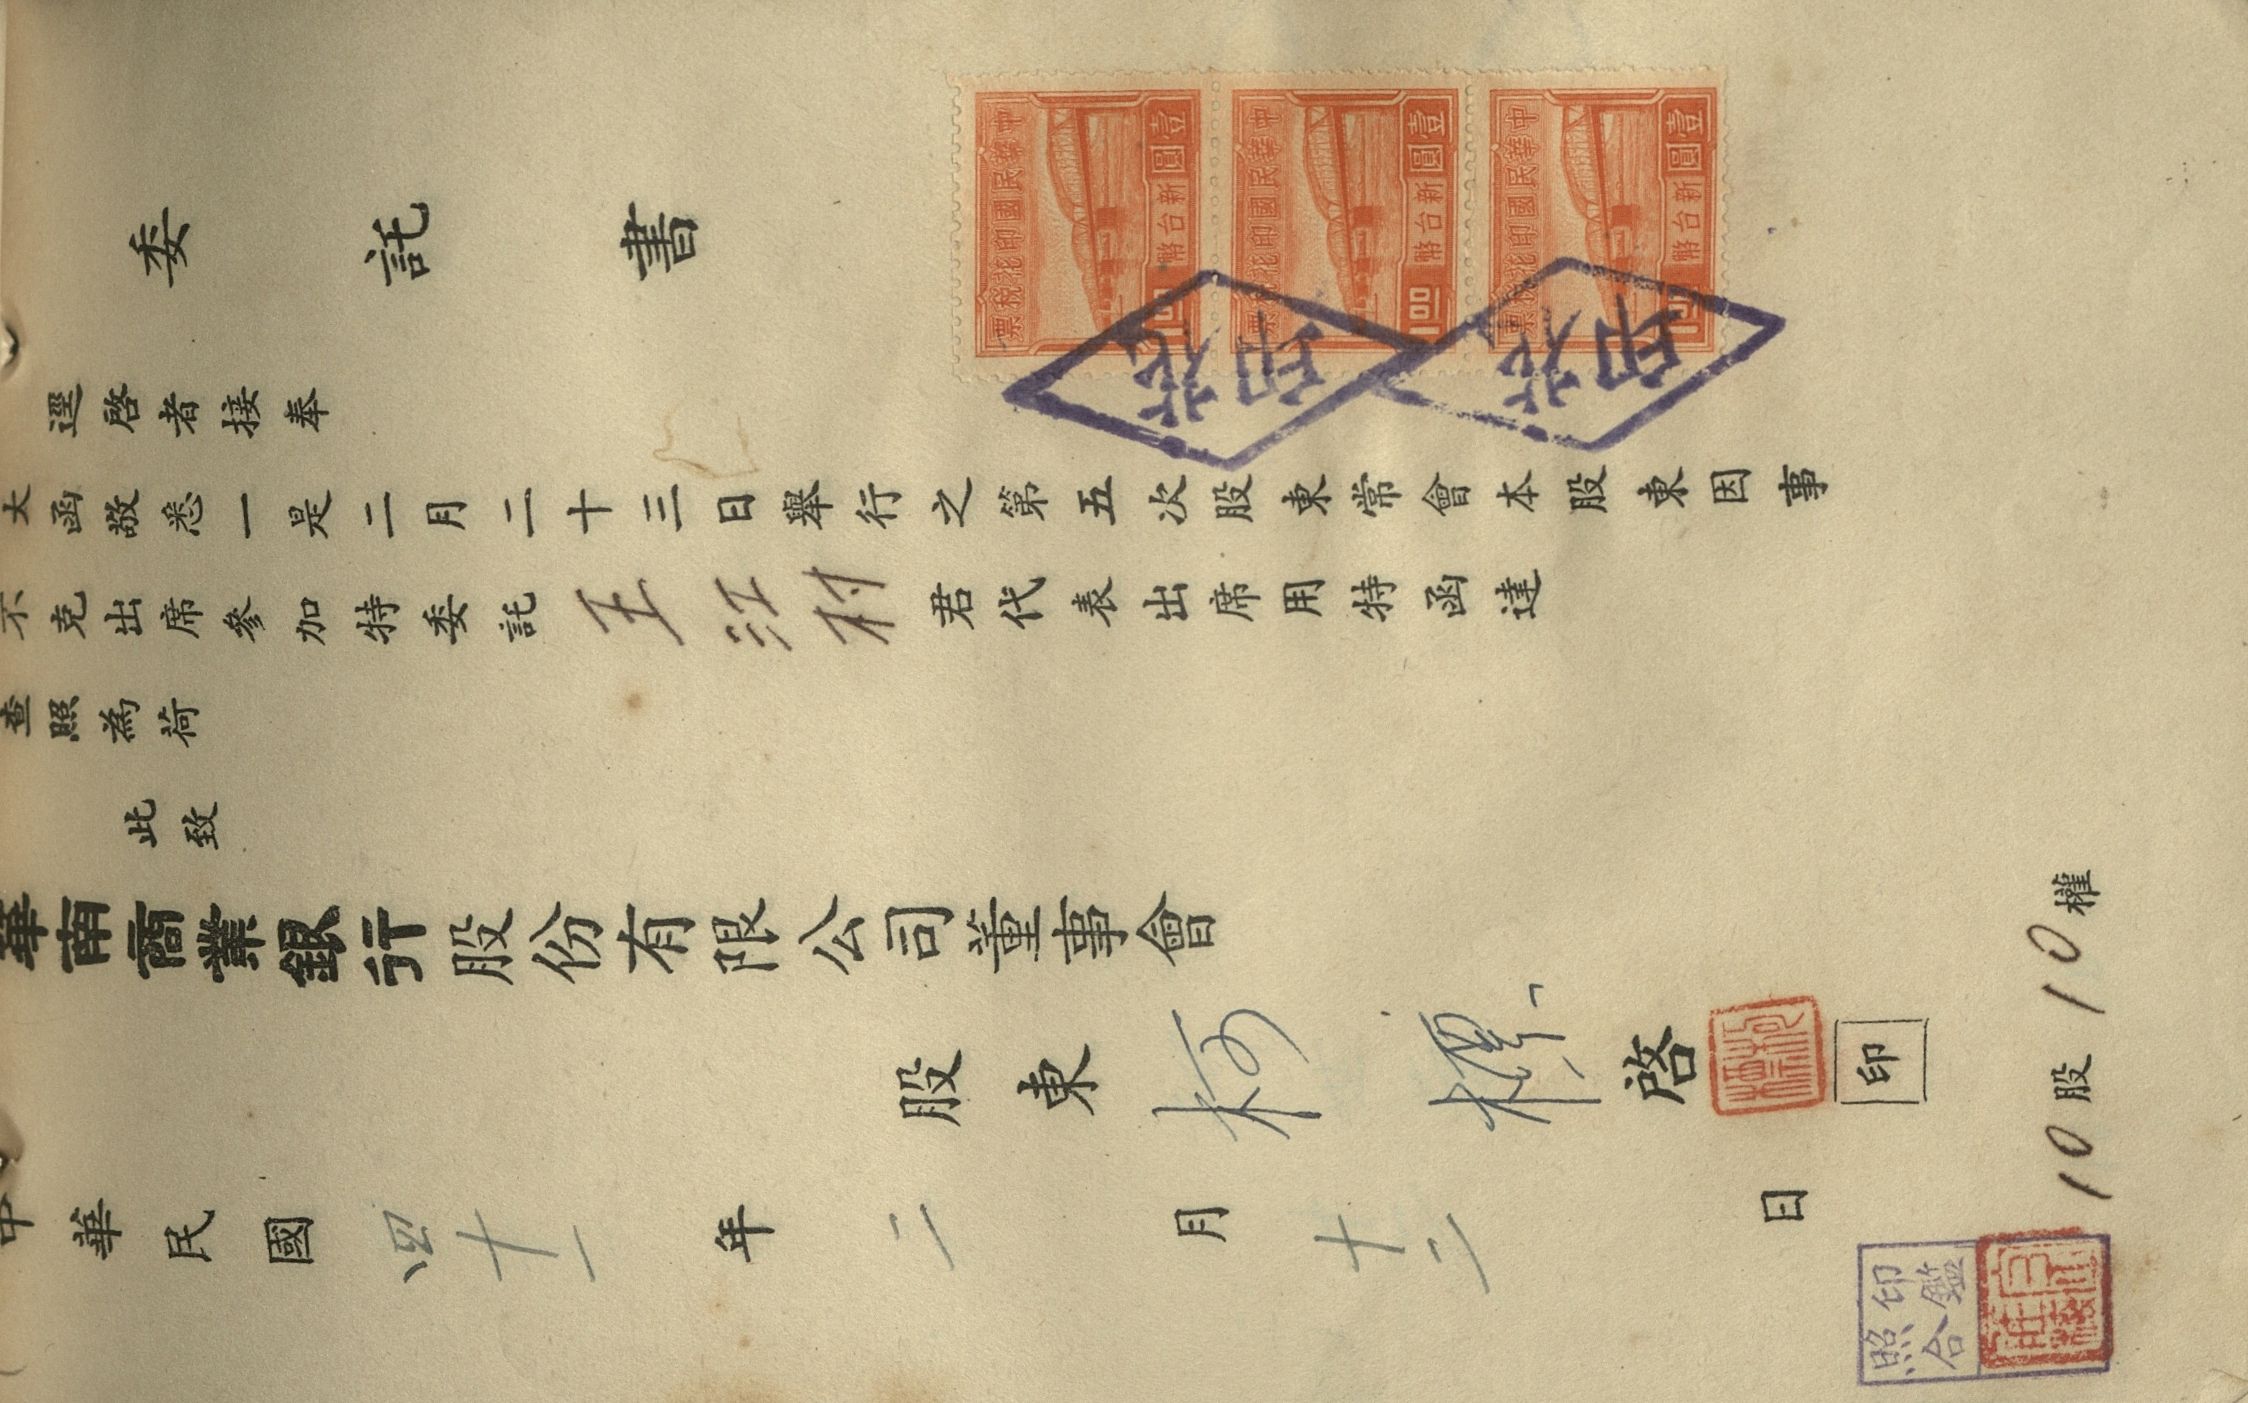 委託書
逕啓者接奉
大函敬悉一是二月二十三日舉行之第五次股東常會本股東因事
不克出席參加特委託王江村君代表出席用特函達
查照為荷
此致
華南商業銀行股份有限公司董事會
股東柯標啓
印
中華民國四十一年二月十二日
10股10權
印鑑
照合
中華民國印花稅票
壹圓
新台幣
100
中華民國印花稅票
壹圓
新台幣
100
中華民國印花稅票
壹圓
新台幣
100
印花
印花